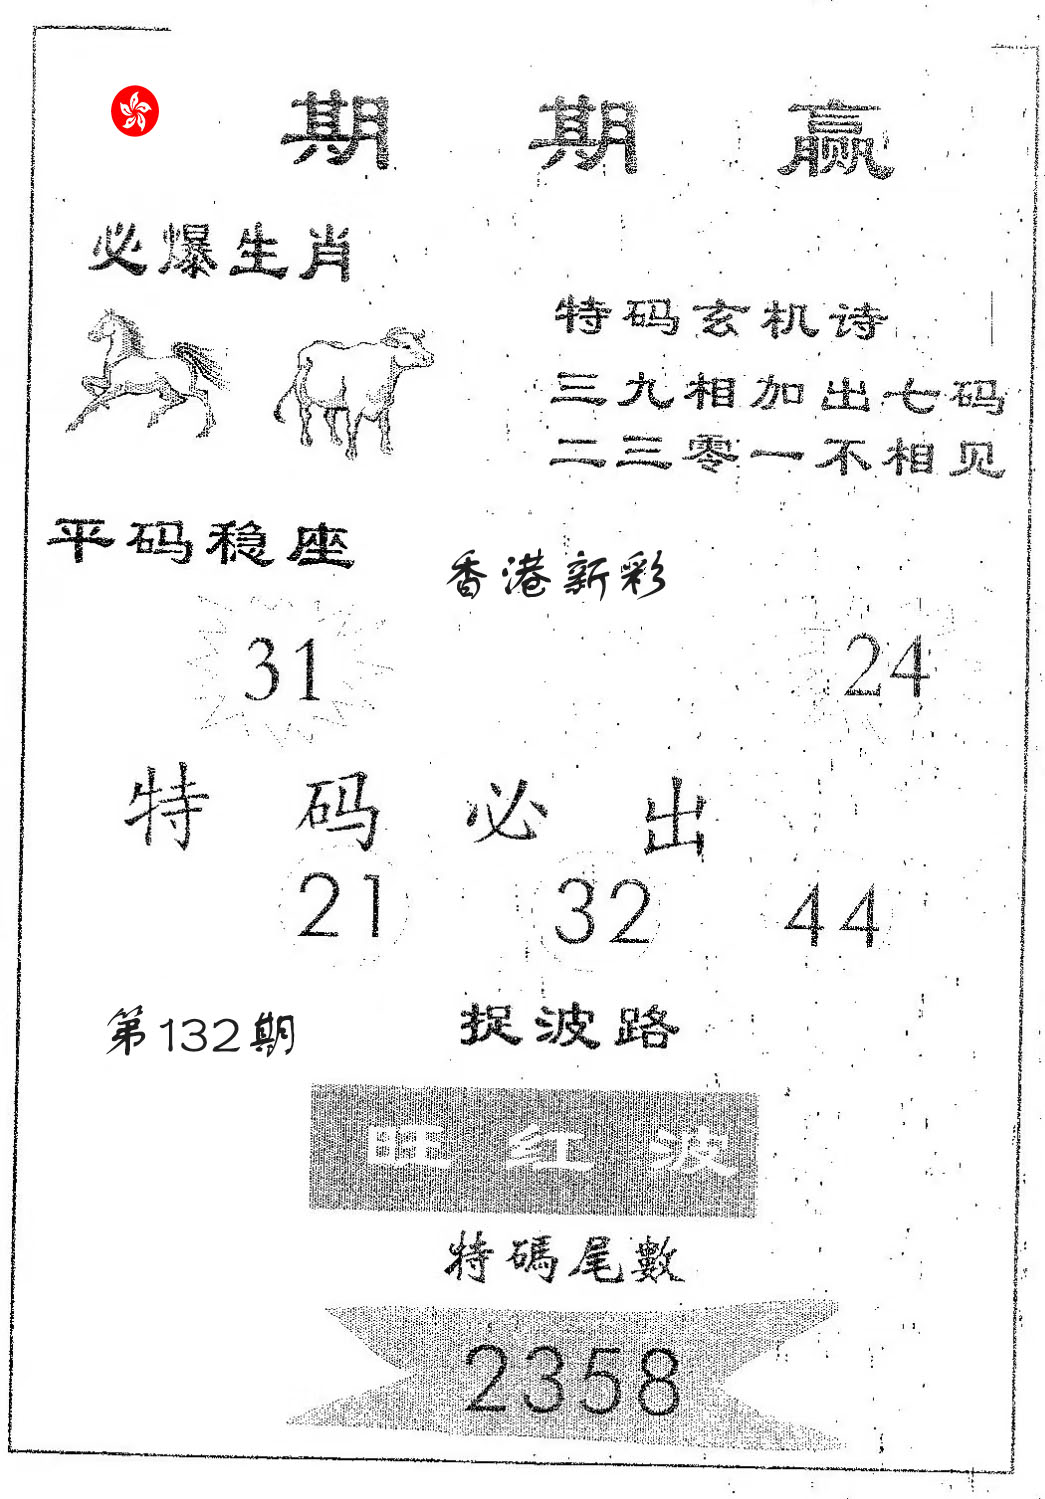 期期赢
必爆生肖
特码玄机诗
三九相加出七码
二三零一不相见
平码稳座
香港新彩
31 24
特码必出
21 32 44
第132期
捉波路
旺红波
特碼尾數
2358